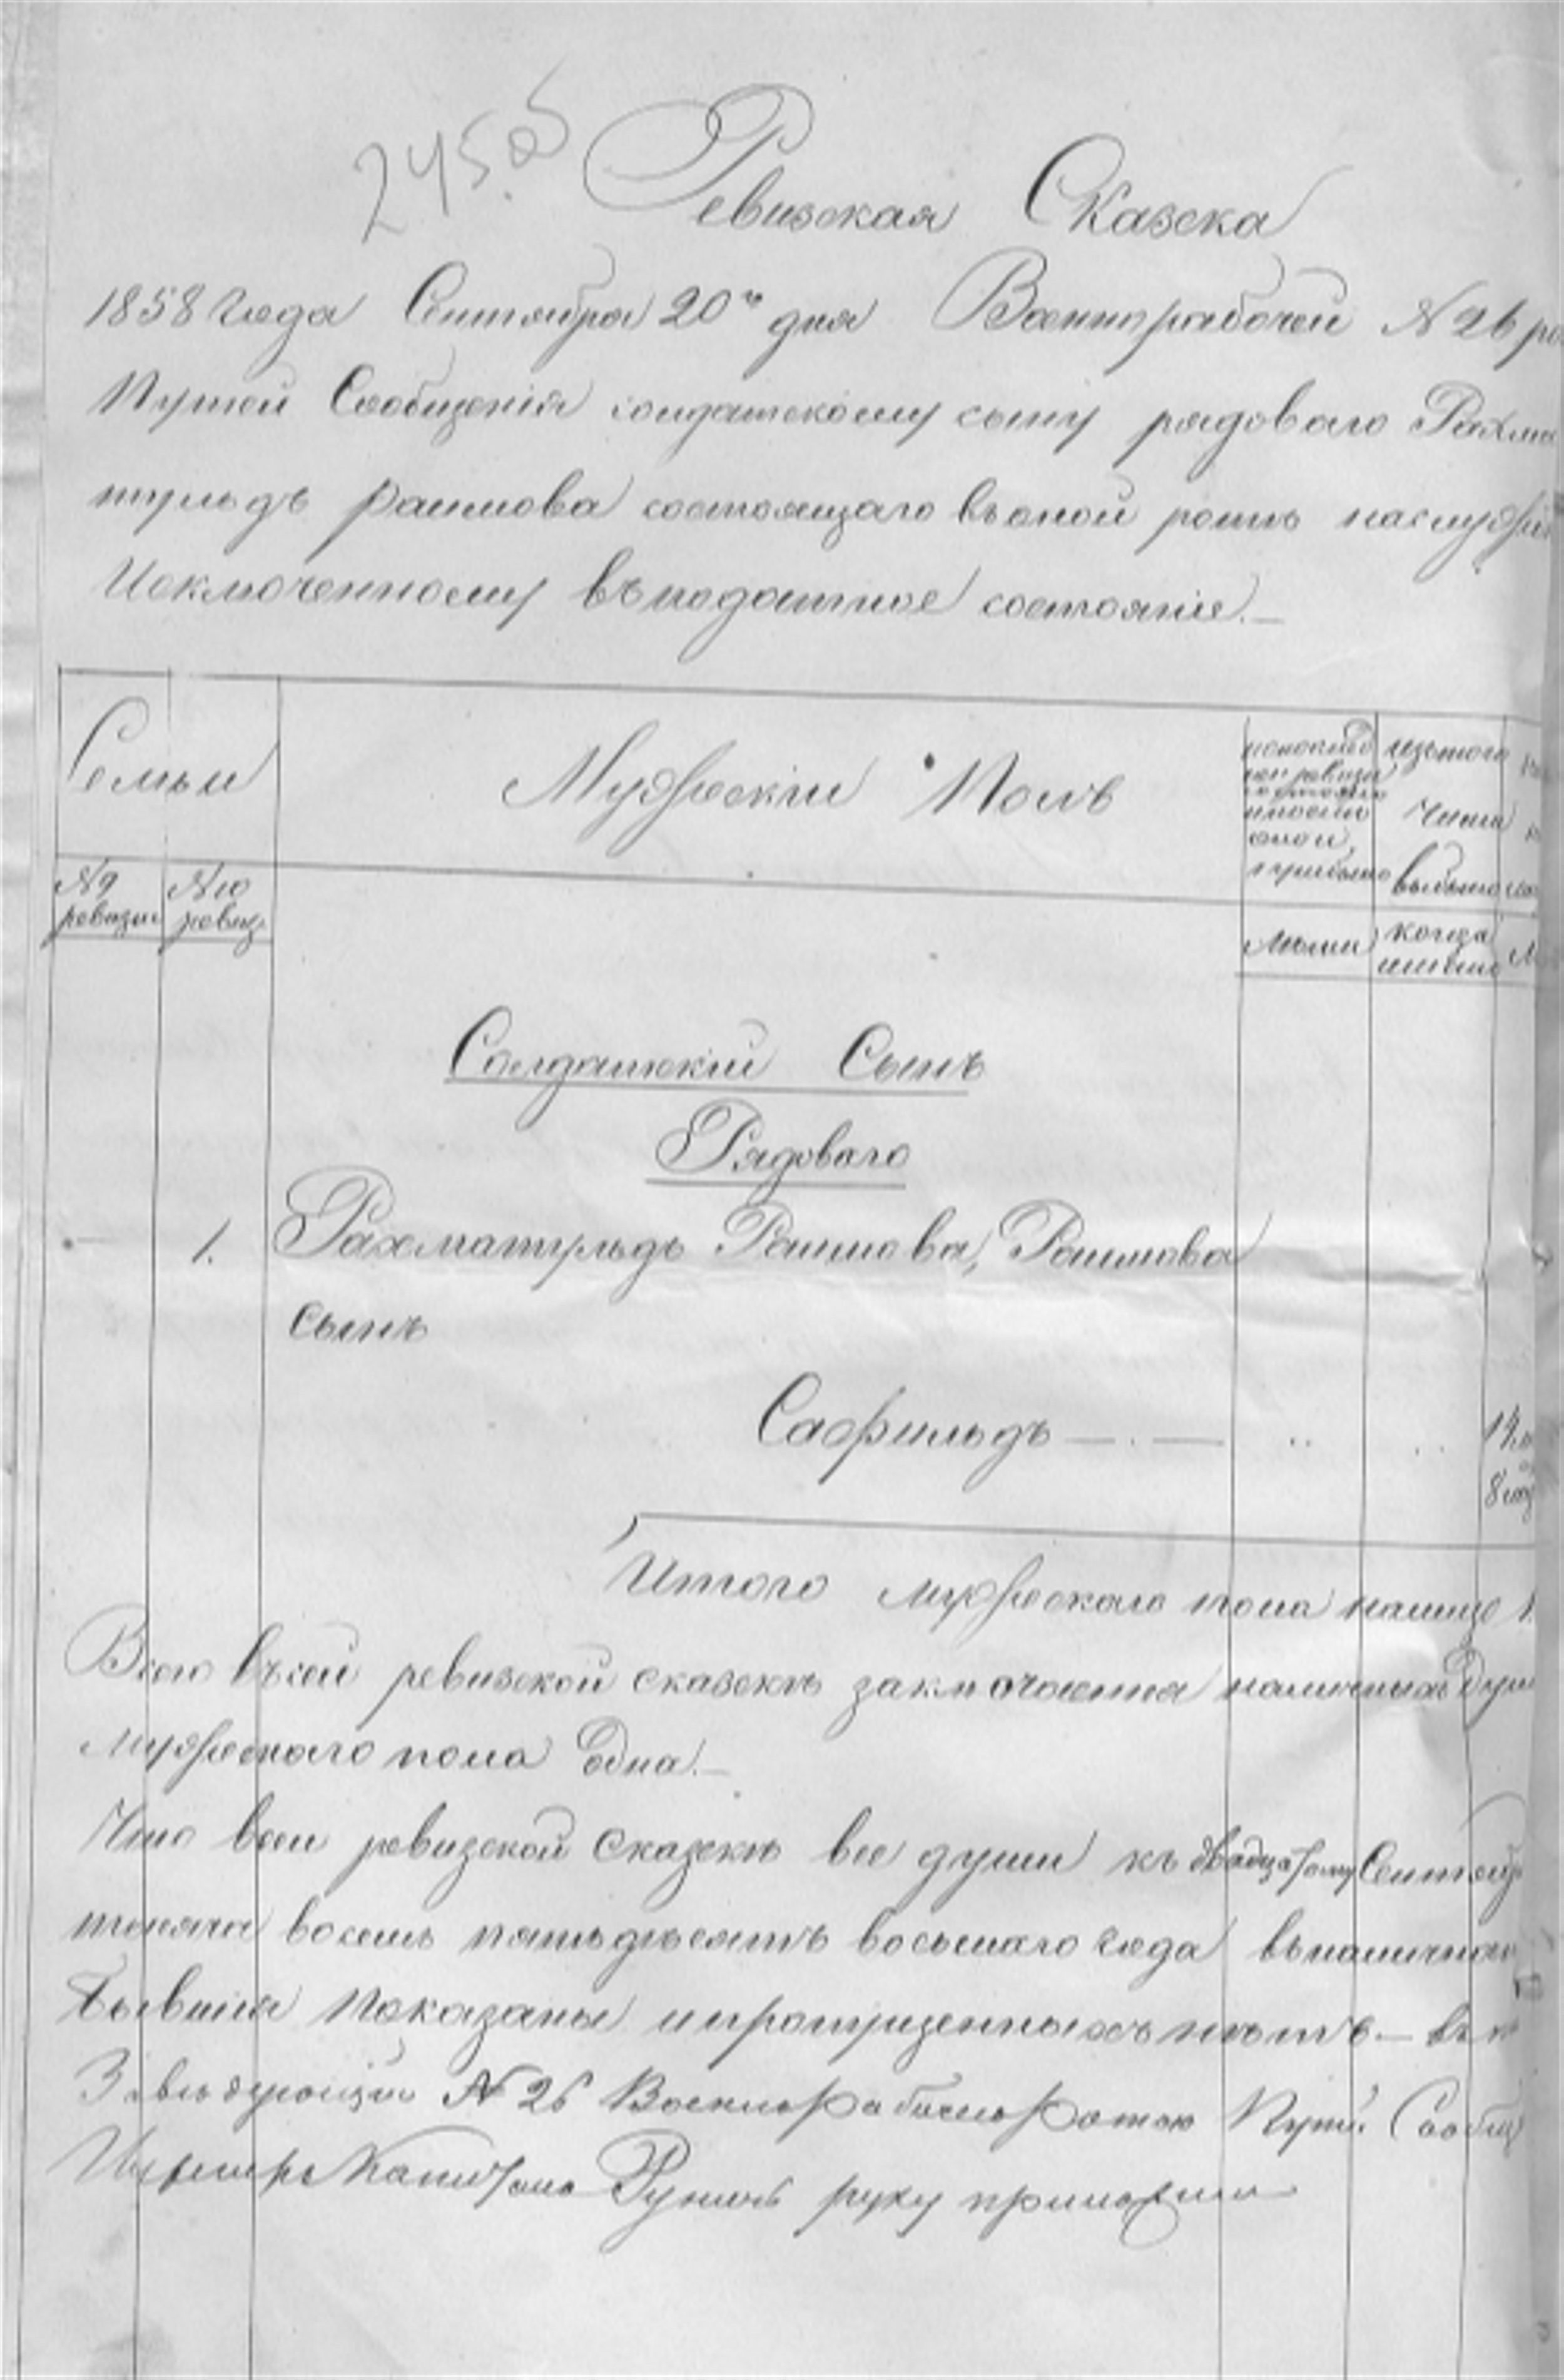 245
Ревизская Сказска
1858 года Сентября 20го дня Военнорабочей N 26 ро
Путей Сообщенія солдатскому сыну рядоваго Рахма
тульдъ Раимова состоящаго въ оной роте на служ
Исключенному въ податное состояніе.—
Семьи
Мужескій Полъ
изъ того
числа
выбыло
N 9 ревизіи
N 10 ревиз.
Лѣты
когда
имянно
Солдатскій Сынъ
Рядоваго
1. Рахматульдъ Раимова, Раимова
сынъ
Сафильдъ — . —
14
8
Итого мужескаго пола налицо 1.
Всего въ сей ревизской сказскѣ заключается наличныхъ душ
мужескаго пола одна.—
Что в сей ревизской сказскѣ все души къ двадцатому Сентяб
тысяча восемь пятьдесятъ восьмаго года въ наличнос
бывшія показаны и пропущенныхъ нѣтъ.— въ
Завѣдующій N 26 Военно Рабочею Ротою Путей Сообщ
Инженер Капитанъ руку приложилъ